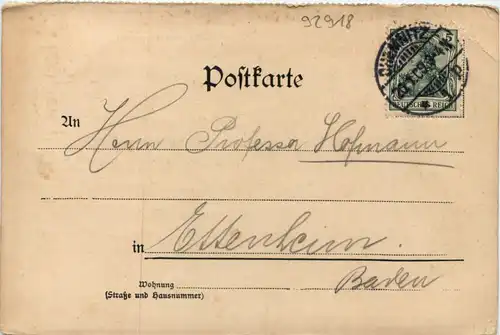 92918
CHEMNITZ
DEUTSCHES REICH
Postkarte
An
Herrn Professor Hofmann
in Ettenheim.
Baden
Wohnung
(Straße und Hausnummer)